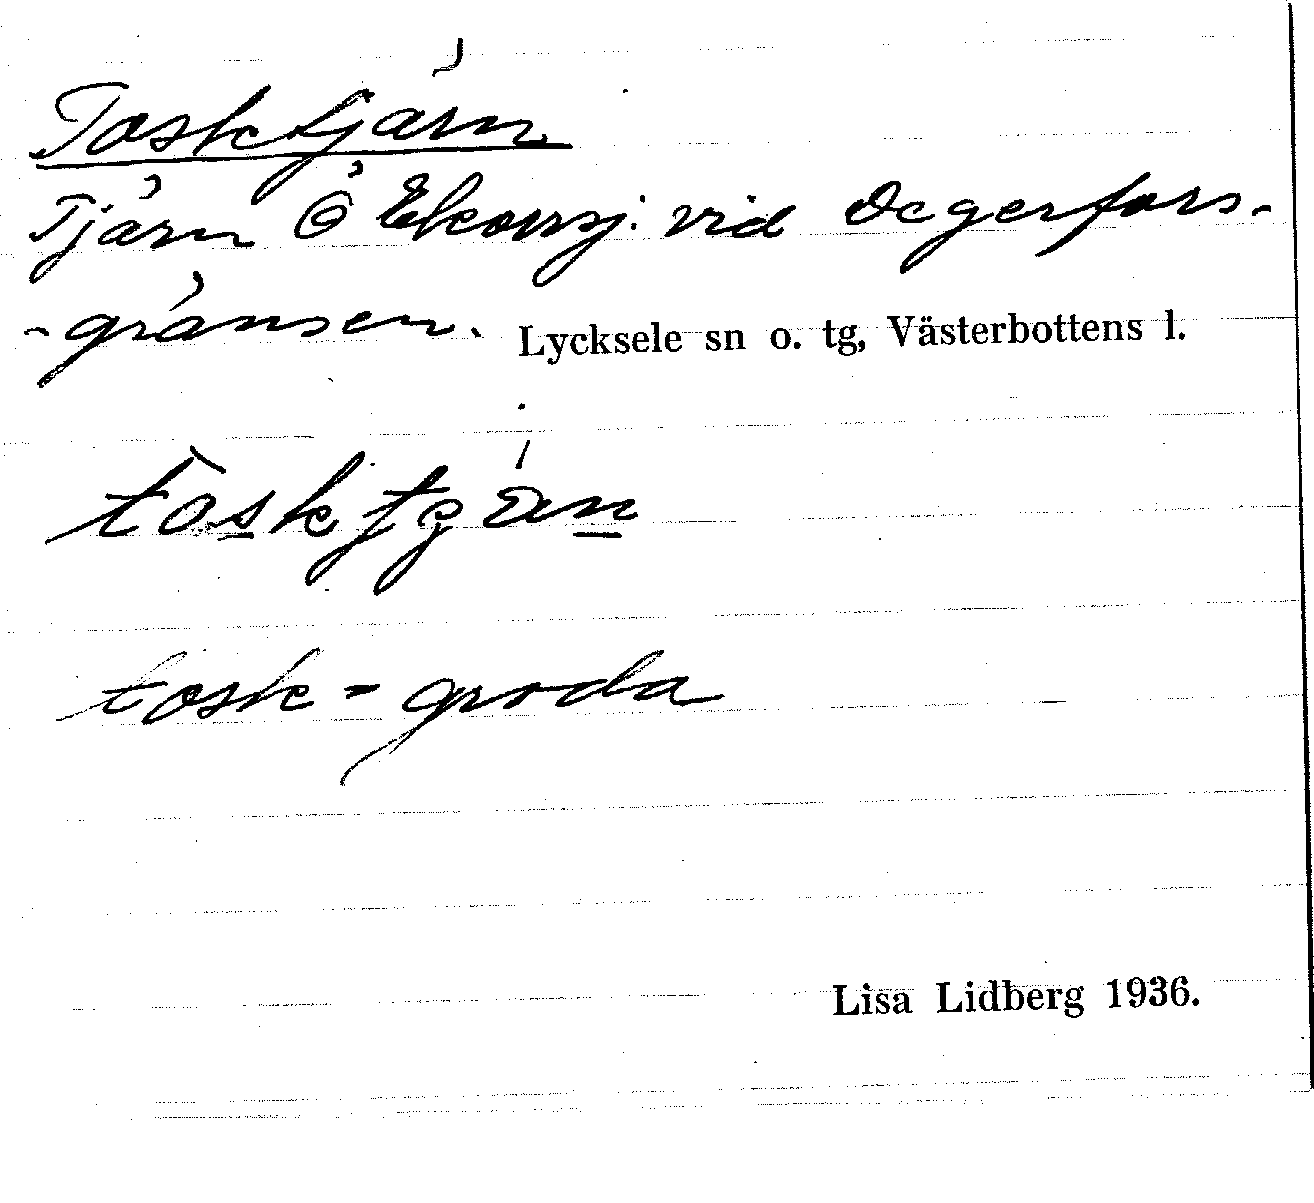 Tosktjärn
Tjärn Ö Ekorrsj. vid Degerfors-
-gränsen. Lycksele sn o. tg, Västerbottens l.
tosk - groda
Lisa Lidberg 1936.